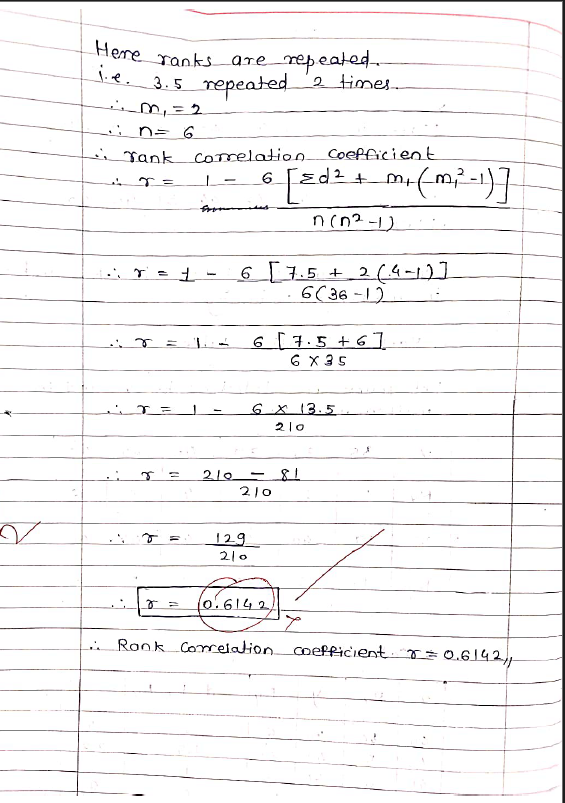 Here ranks are repeated.
i.e. 3.5 repeated 2 times.
∴ m₁ = 2
∴ n = 6
∴ rank correlation coefficient
∴ r = 1 - 6 [Σd² + m₁(m₁² - 1)]
n(n² - 1)
∴ r = 1 - 6 [7.5 + 2(4-1)]
6(36-1)
∴ r = 1 - 6 [7.5 + 6]
6 × 35
∴ r = 1 - 6 × 13.5
210
∴ r = 210 - 81
210
∴ r = 129
210
∴ r = 0.6142
∴ Rank correlation coefficient r = 0.6142//